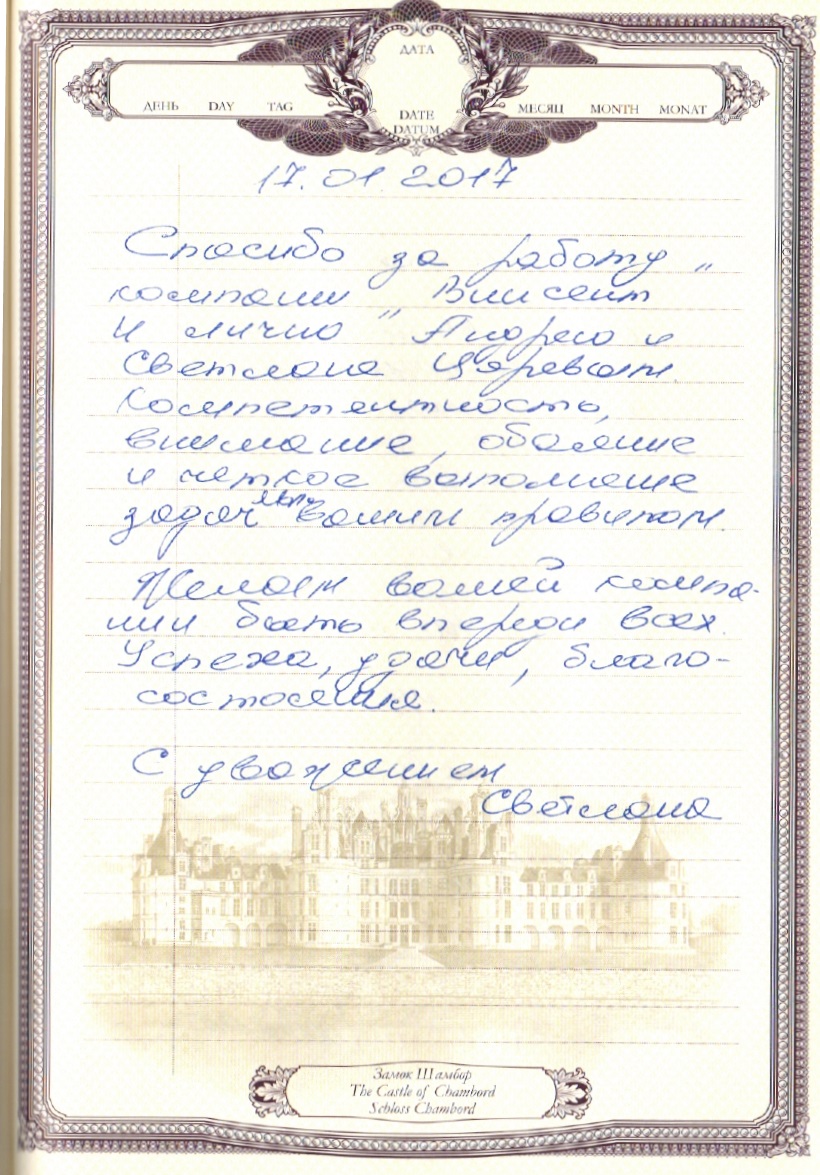 ДАТА
ДЕНЬ DAY TAG
DATE
DATUM
МЕСЯЦ MONTH MONAT
17.01.2017
Спасибо за работу
компании „Винсент"
и лично Андрею и
Светлане Царевым.
Компетентность,
внимание, обаяние
и четкое выполнение
задач вашим правилом.
Желаем вашей компа-
нии быть впереди всех.
Успеха, удачи, благо-
состояния.
С уважением
Светлана
Замок Шамбор
The Castle of Chambord
Schloss Chambord